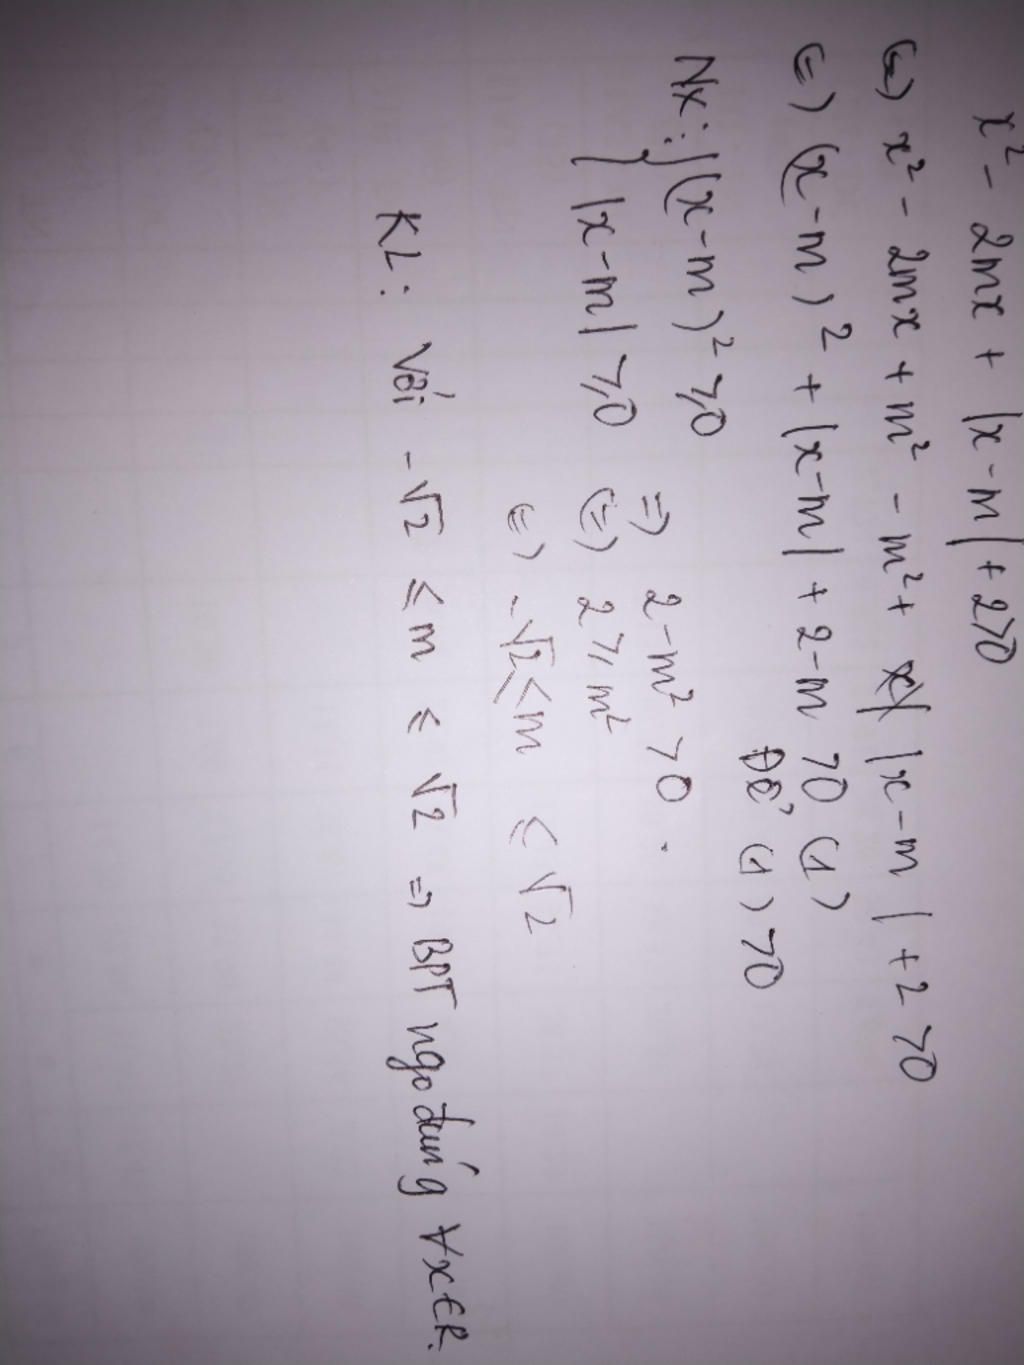 x² - 2mx + |x-m| + 2 > 0
(=) x² - 2mx + m² - m² + |x-m| + 2 > 0
(=) (x-m)² + |x-m| + 2-m > 0 (1)
Để (1) > 0
Nx: { (x-m)² ≥ 0 => 2-m² > 0.
|x-m| ≥ 0 (=) 2 ≥ m²
(=) -√2 ≤ m ≤ √2
KL: Với -√2 ≤ m ≤ √2 => BPT ngo đúng ∀x∈R.